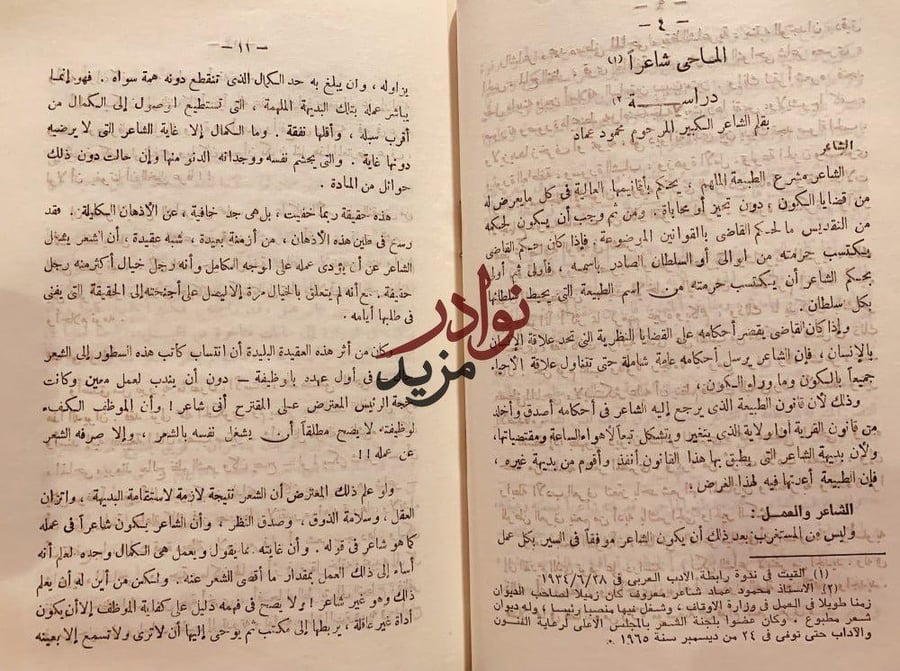 - ٤ -
الماحى شاعراً (١)
دراســــة (٢)
بقلم الشاعر الكبير المرحوم محمود عماد
الشاعر
الشاعر مشرع الطبيعة الملهم ، يحكم بأقانيمها العالية فى كل مايعرض له
من قضايا الكون ، دون تحيز أو محاباة . ومن ثم وجب أن يكون لحكمه
من التقديس ما لحكم القاضى بالقوانين الموضوعة . فإذا كان حكم القاضى
يكتسب حرمته من الوالى أو السلطان الصادر باسمه ، فأولى ثم أولى
بحكم الشاعر أن يكتسب حرمته من اسم الطبيعة التى يحيط سلطانها
بكل سلطان .
وإذا كان القاضى يقصر أحكامه على القضايا النظرية التى تحد علاقة الإنسان
بالإنسان ، فإن الشاعر يرسل أحكامه عامة شاملة حتى تتناول علاقة الأحياء
جميعاً بالكون وما وراء الكون .
وذلك لأن قانون الطبيعة الذى يرجع إليه الشاعر فى أحكامه أصدق وأخلد
من قانون القرية أو الولاية الذى يتغير ويتشكل تبعاً لأهواء الساعة ومقتضياتها،
ولأن بديهة الشاعر التى يطبق بها هذا القانون أنفذ وأقوم من بديهة غيره ،
فإن الطبيعة أعدتها فيه لهذا الغرض .
الشاعر والعمل :
وليس من المستغرب بعد ذلك أن يكون الشاعر موفقاً فى السير بكل عمل
(١) القيت فى ندوة رابطة الأدب العربى فى ١٩٣٤/٦/٢٨
(٢) الاستاذ محمود عماد شاعر معروف كان زميلا لصاحب الديوان
زمنا طويلا فى العمل فى وزارة الاوقاف ، وشغل فيها منصبا رئيسا ، وله ديوان
شعر مطبوع . وكان عضوا بلجنة الشعر بالمجلس الاعلى لرعاية الفنون
والآداب حتى توفى فى ٢٤ من ديسمبر سنة ١٩٦٥ .
- ١١ -
يزاوله ، وان يبلغ به حد الكمال الذى تنقطع دونه همة سواه . فهو إنما
يباشر عمله بتلك البديهة الملهمة ، التى تستطيع الوصول إلى الكمال من
أقرب سبله ، وأقلها نفقة . وما الكمال إلا غاية الشاعر التى لا يرضيه
دونها غاية . والتى يجشم نفسه ووجدانه الدنو منها وإن حالت دون ذلك
حوائل من المادة .
هذه حقيقة ربما خفيت ، بل هى جد خافية ، عن الأذهان الكليلة . فقد
رسخ فى طين هذه الأذهان ، من أزمنة بعيدة ، شبه عقيدة ، أن الشعر يشغل
الشاعر عن أن يؤدى عمله على الوجه الكامل وأنه رجل خيال أكثر منه رجل
حقيقة . مع أنه لم يتعلق بالخيال مرة إلا ليصل على أجنحته إلى الحقيقة التى يفنى
فى طلبها أيامه .
وكان من أثر هذه العقيدة البليدة أن انتساب كاتب هذه السطور إلى الشعر
فى أول عهده بالوظيفة — دون أن يندب لعمل معين وكانت
حجة الرئيس المعترض على المقترح أنى شاعر ! وأن الموظف الكفء
لوظيفته لا يصح مطلقاً أن يشغل نفسه بالشعر ، وإلا صرفه الشعر
عن عمله !!
ولو علم ذلك المعترض أن الشعر نتيجة لازمة لاستقامة البديهة ، واتزان
العقل ، وسلامة الذوق ، وصدق النظر ، وأن الشاعر يكون شاعراً فى عمله
كما هو شاعر فى قوله . وأن غايته مما يقول ويعمل هى الكمال وحده لعلم أنه
أساء إلى ذلك العمل بمقدار ما أقصى الشعر عنه . ولكن من أين له أن يعلم
ذلك وهو غير شاعر ! ولا يصح فى فهمه دليل على كفاية الموظف إلا أن يكون
أداة غير عاقلة ، يربطها إلى مكتب ثم يوحى إليها أن لا ترى ولا تسمع إلا بعينه
نوادر
مزيد